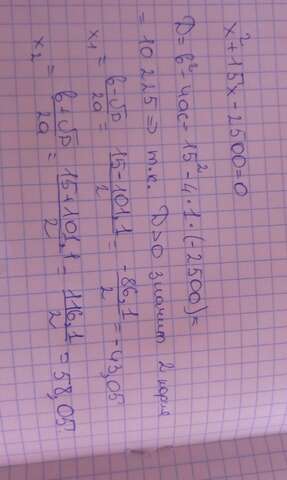 x²+15x-2500=0
D=b²-4ac=15²-4·1·(-2500)=
=10225=> т.к. D>0 значит 2 корня
x₁ = b-√D/2a = 15-101,1/2 = -86,1/2 = -43,05
x₂ = b+√D/2a = 15+101,1/2 = 116,1/2 = 58,05